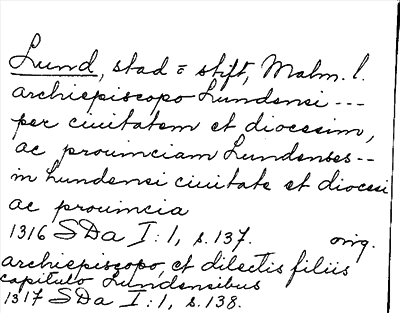 Lund, stad = stift, Malm. l.
archiepiscopo Lundensi ---
per ciuitatem et diocesim,
ac prouinciam Lundenses --
in Lundensi ciuitate et diocesi
ac prouincia
1316 SDa I:1, s. 137. orig.
archiepiscopo, et dilectis filiis
capitulo Lundensibus
1317 SDa I:1, s. 138.